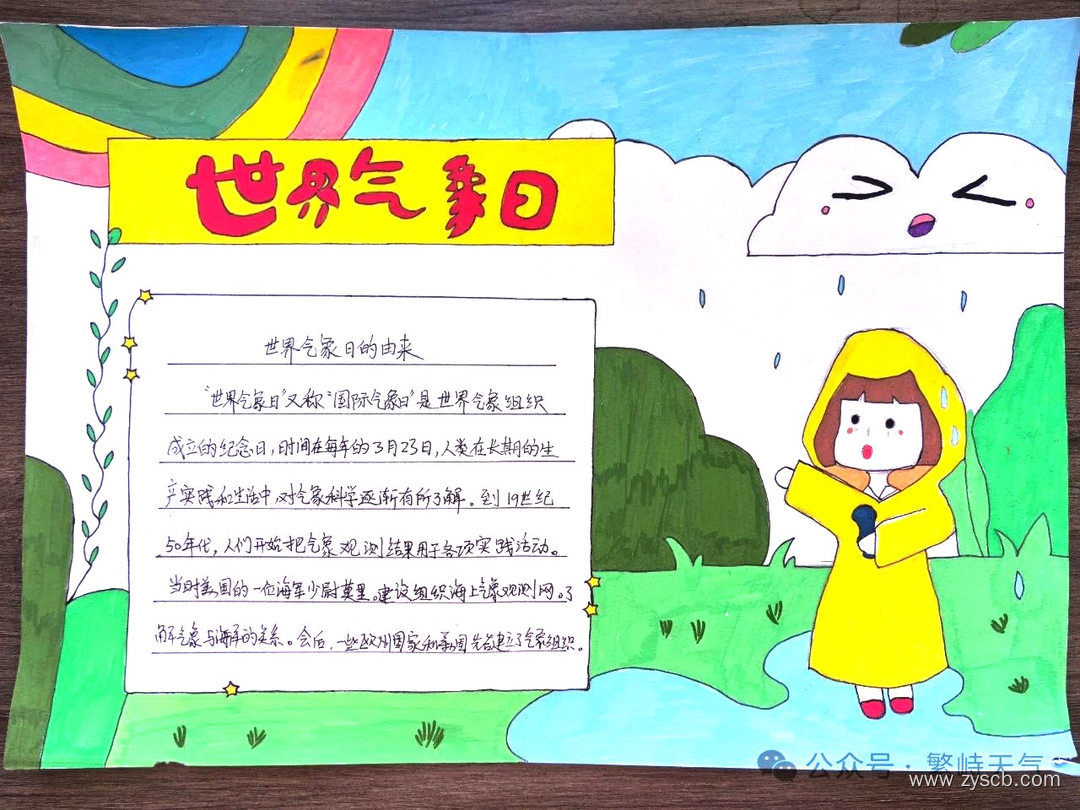 世界气象日
世界气象日的由来
“世界气象日”又称“国际气象日”是世界气象组织
成立的纪念日,时间在每年的3月23日,人类在长期的生
产实践和生活中,对气象科学逐渐有所了解。到19世纪
50年代,人们开始把气象观测结果用于各项实践活动。
当时美国的一位海军少尉莫里。建设组织海上气象观测网。了
解气象与海洋的关系。会后,一些欧洲国家和美国先后建立了气象组织。
公众号·繁峙天气
www.zyscb.com